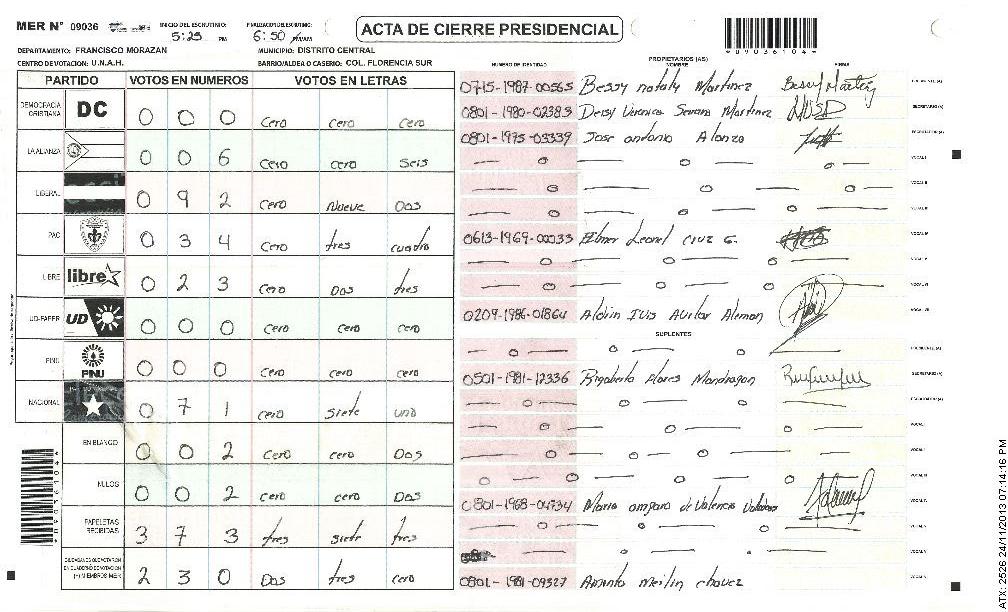 MER N° 09036 INICIO DEL ESCRUTINIO: 5:25 PM FINALIZACION DEL ESCRUTINIO: 6:50 ACTA DE CIERRE PRESIDENCIAL
*09036104*
DEPARTAMENTO: FRANCISCO MORAZAN MUNICIPIO: DISTRITO CENTRAL
CENTRO DE VOTACION: U.N.A.H. BARRIO/ALDEA O CASERIO: COL. FLORENCIA SUR
PARTIDO VOTOS EN NUMEROS VOTOS EN LETRAS
DEMOCRACIA CRISTIANA DC 0 0 0 Cero Cero Cero
LA ALIANZA 0 0 6 Cero Cero Seis
LIBERAL 0 9 2 Cero Nueve Dos
PAC 0 3 4 Cero tres cuatro
LIBRE libre 0 2 3 Cero Dos tres
UD-FAPER UD 0 0 0 Cero Cero Cero
PINU PINU 0 0 0 Cero Cero Cero
NACIONAL 0 7 1 Cero Siete uno
EN BLANCO 0 0 2 Cero Cero Dos
NULOS 0 0 2 Cero Cero Dos
PAPELETAS RECIBIDAS 3 7 3 tres siete tres
CIUDADANOS QUE VOTARON EN CUADERNO DE VOTACION (+) MIEMBROS MER 2 3 0 Dos tres cero
NUMERO DE IDENTIDAD PROPIETARIOS (AS) NOMBRE FIRMA
0715-1987-00565 Bessy nataly Martinez Bessy Martinez PRESIDENTE (A)
0801-1980-02383 Deisy Veronica Serrano Martinez SECRETARIO (A)
0801-1975-03339 Jose antonio Alonzo ESCRUTADOR (A)
VOCAL I
VOCAL II
VOCAL III
0613-1969-00033 Elmer Leonel Cruz G. VOCAL IV
VOCAL V
VOCAL VI
0209-1986-01864 Aldrin Ivis Avilar Aleman VOCAL VII
SUPLENTES
PRESIDENTE (A)
0501-1981-12336 Rigoberto Flores Mondragon SECRETARIO (A)
ESCRUTADOR (A)
VOCAL I
0801-1968-04734 Maria amparo de Valencia
0801-1981-09327 Aminto meilin chavez
*09036104*
ATX-2526 24/11/2013 07:14:16 PM